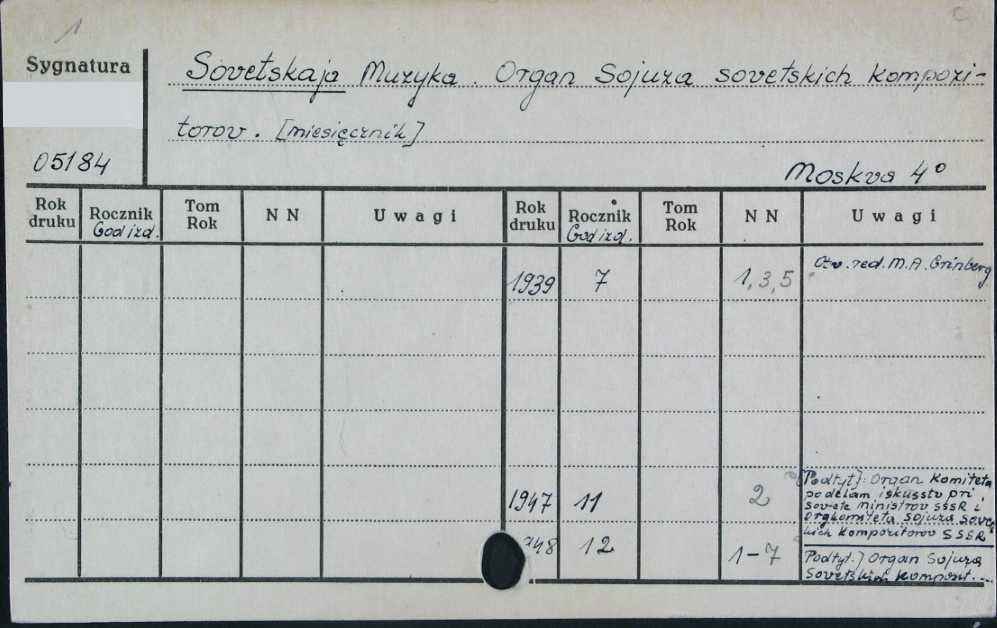 1
Sygnatura
Sovetskaja Muzyka. Organ Sojuza sovetskich kompozi-
torov. [miesięcznik]
05184
Moskva 4°
Rok druku Rocznik Tom Rok N N Uwagi Rok druku Rocznik Tom Rok N N Uwagi
God izd. God izd.
1939 7 1, 3, 5 Otv. red. M. A. Grinberg
1947 11 2 [Podtyt]: Organ Komiteta
po delam iskusstv pri
Sovete ministrov SSSR i
Orgkomiteta Sojuza sovet
skich kompozitorov SSSR
48 12 1-7 Podtyt.] Organ Sojuza
Sovetskich kompozit...